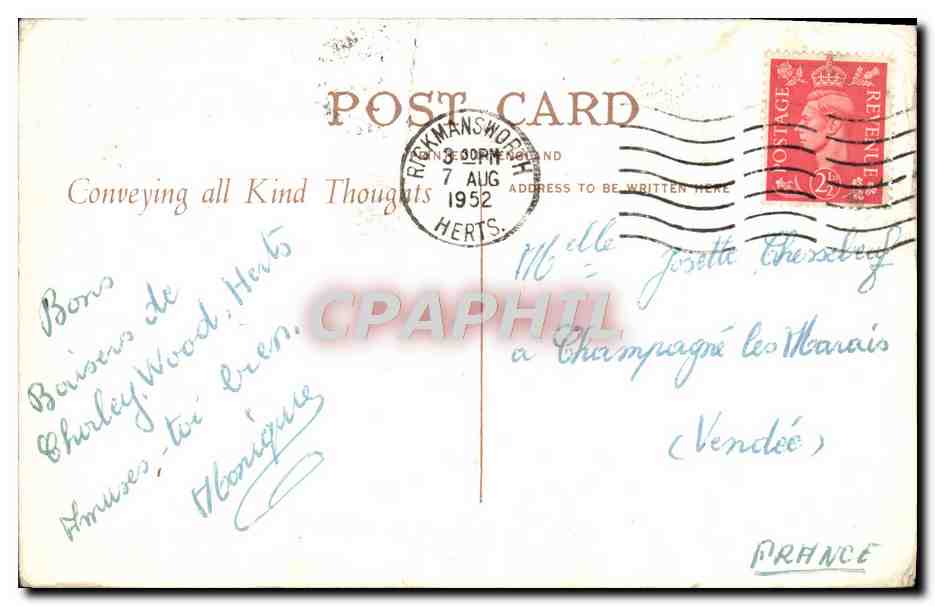 POST CARD
PRINTED IN ENGLAND
Conveying all Kind Thoughts
ADDRESS TO BE WRITTEN HERE
RICKMANSWORTH
3 30PM
7 AUG
1952
HERTS.
POSTAGE
REVENUE
2½D
Bons
Baisers de
Chorley Wood, Herts
Amuses-toi bien.
Monique
Melle Josette
à Champagné les Marais
(Vendée)
FRANCE
CPAPHIL